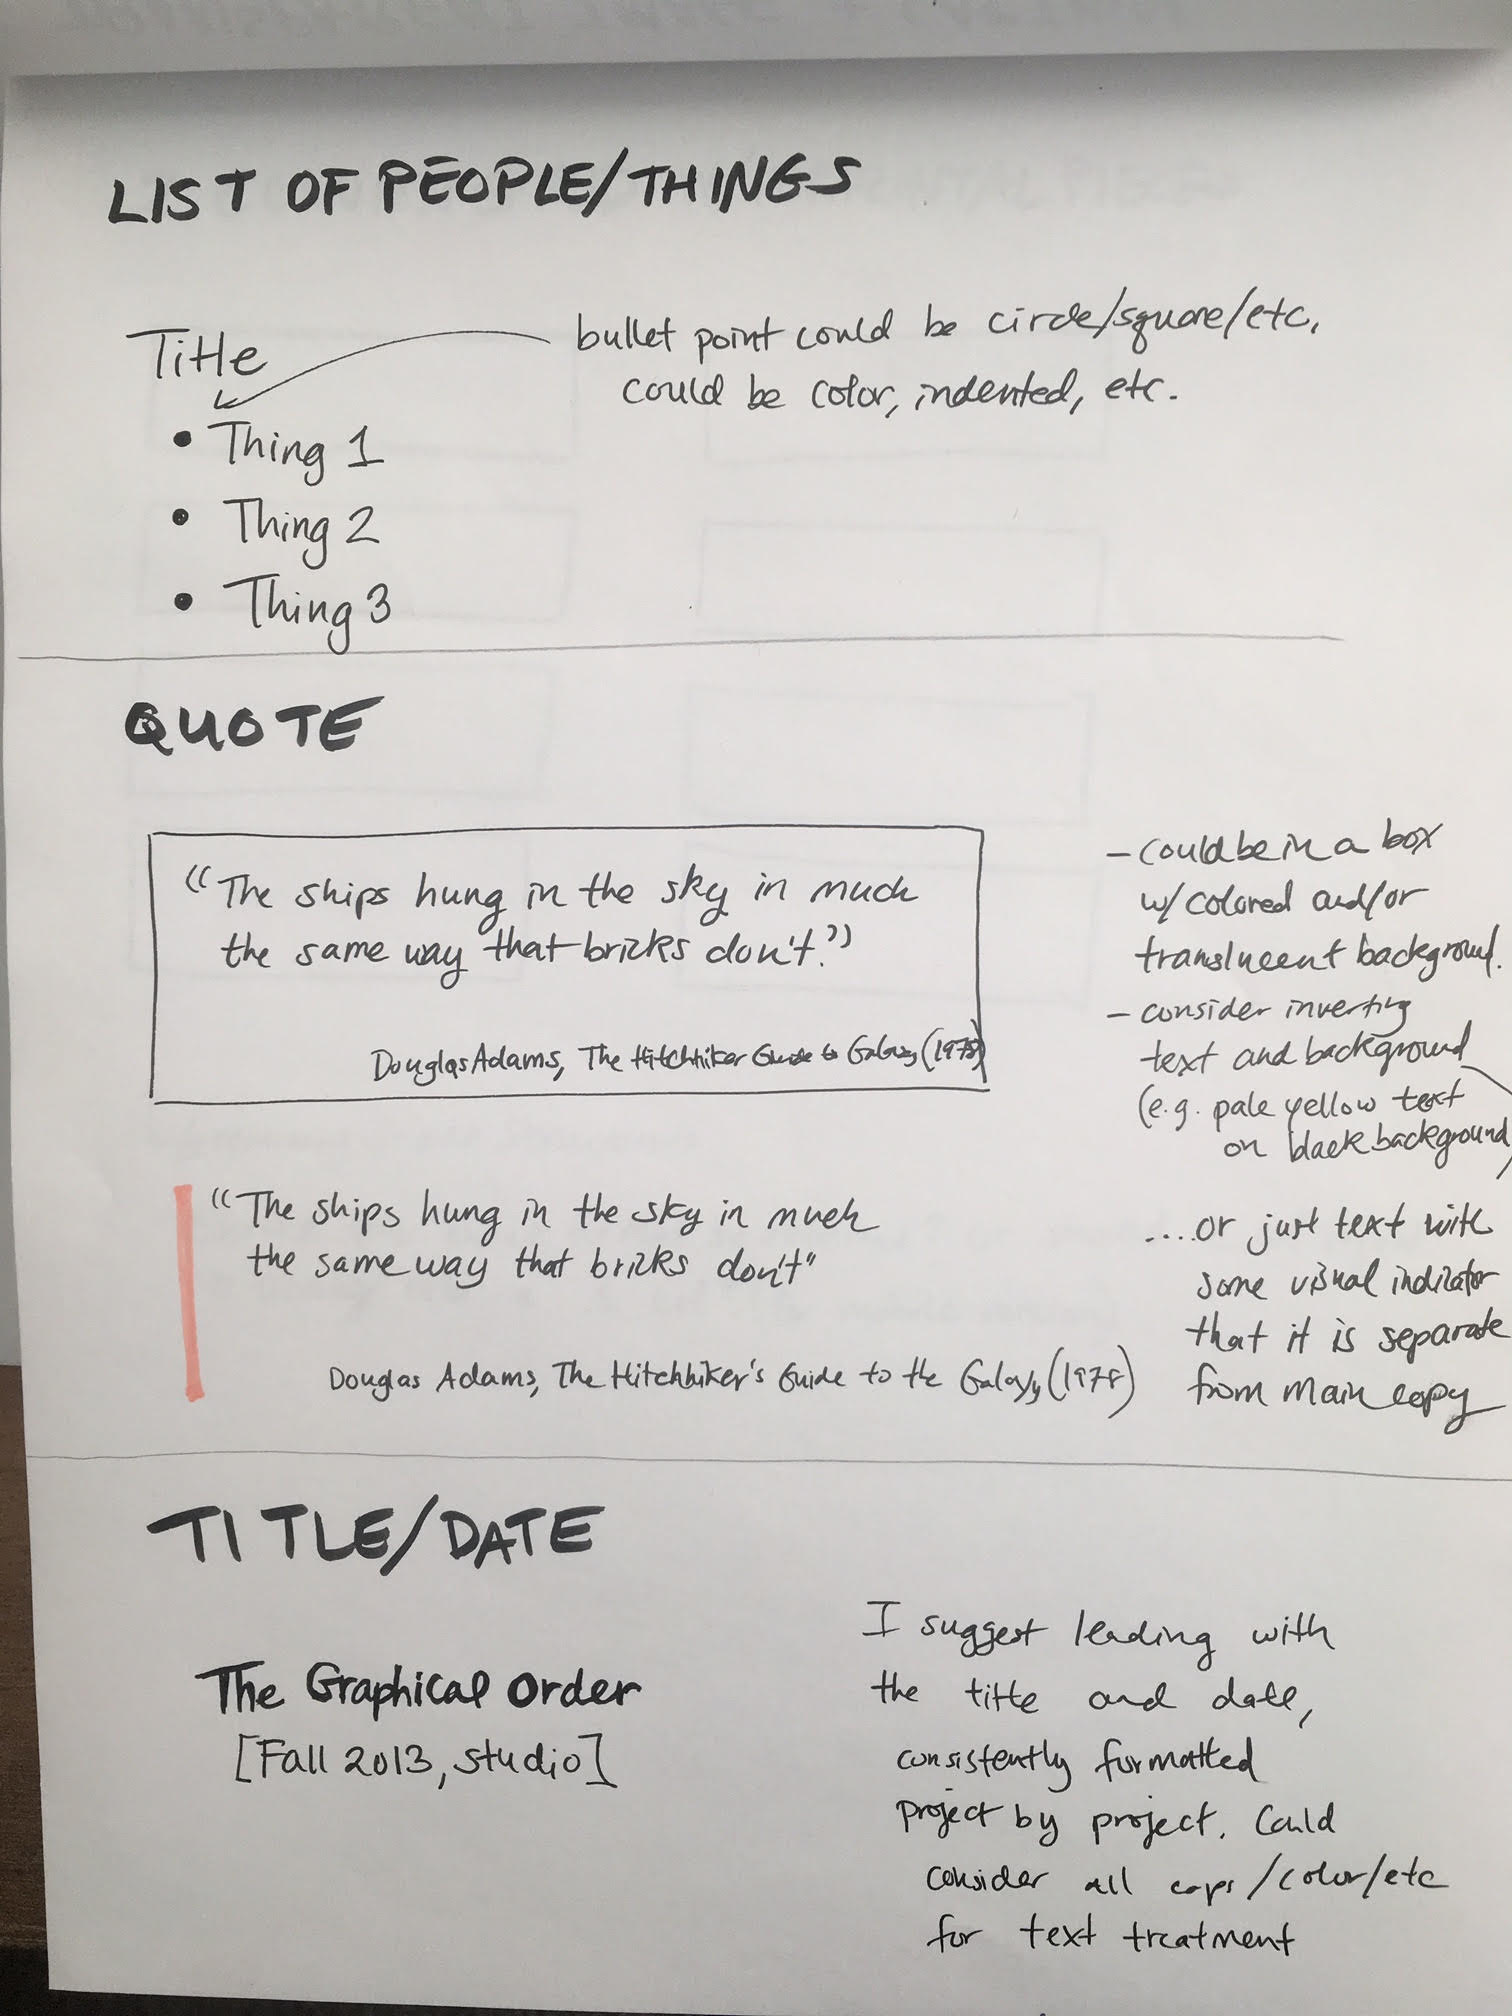 LIST OF PEOPLE/THINGS
Title
bullet point could be circle/square/etc,
could be color, indented, etc.
• Thing 1
• Thing 2
• Thing 3
QUOTE
“The ships hung in the sky in much
the same way that bricks don't.”
Douglas Adams, The Hitchhiker Guide to Galaxy (1978)
– could be in a box
w/ colored and/or
translucent background.
– consider inverting
text and background
(e.g. pale yellow text
on black background
“The ships hung in the sky in much
the same way that bricks don't"
Douglas Adams, The Hitchhiker's Guide to the Galaxy (1978)
....or just text with
some visual indicator
that it is separate
from main copy
TITLE/DATE
The Graphical Order
[Fall 2013, studio]
I suggest leading with
the title and date,
consistently formatted
project by project. Could
consider all caps/color/etc
for text treatment